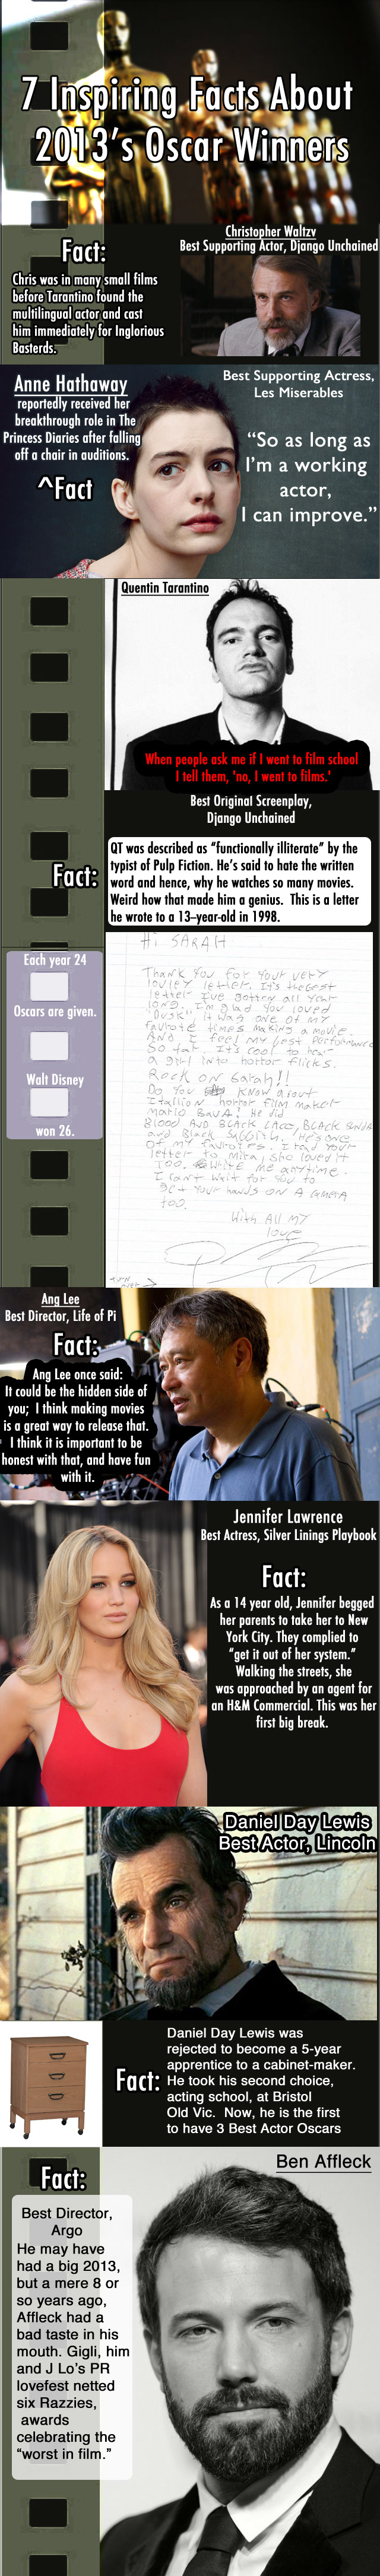 7 Inspiring Facts About
2013's Oscar Winners
Christopher Waltzv
Best Supporting Actor, Django Unchained
Fact:
Chris was in many small films
before Tarantino found the
multilingual actor and cast
him immediately for Inglorious
Basterds.
Anne Hathaway
reportedly received her
breakthrough role in The
Princess Diaries after falling
off a chair in auditions.
^Fact
Best Supporting Actress,
Les Miserables
“So as long as
I’m a working
actor,
I can improve.”
Quentin Tarantino
When people ask me if I went to film school
I tell them, 'no, I went to films.'
Best Original Screenplay,
Django Unchained
Fact:
QT was described as “functionally illiterate” by the
typist of Pulp Fiction. He’s said to hate the written
word and hence, why he watches so many movies.
Weird how that made him a genius.  This is a letter
he wrote to a 13–year-old in 1998.
Each year 24
Oscars are given.
Walt Disney
won 26.
Hi SARAH
Thank you for your very
lovley letter. It's the best
letter I've gotten all year
long. I'm glad you loved
"Dusk" it was one of my
favrote times making a movie.
And I feel my best performance
so far. It's cool to hear
a girl into horror flicks.
Rock on Sarah!!
Do you know about
Itallion horror film maker
Mario Bava! He did
Blood AND BLACK LACE, BLACK SUNDAY
and Black Sabbath. He's one
of my favroites. I read your
letter to Mira, she loved it
too. Write me anytime.
I can't wait for you to
get your hands on A camera
too.
With All My
love
Ang Lee
Best Director, Life of Pi
Fact:
Ang Lee once said:
It could be the hidden side of
you;  I think making movies
is a great way to release that.
I think it is important to be
honest with that, and have fun
with it.
Jennifer Lawrence
Best Actress, Silver Linings Playbook
Fact:
As a 14 year old, Jennifer begged
her parents to take her to New
York City. They complied to
“get it out of her system.”
Walking the streets, she
was approached by an agent for
an H&M Commercial. This was her
first big break.
Daniel Day Lewis
Best Actor, Lincoln
Fact:
Daniel Day Lewis was
rejected to become a 5-year
apprentice to a cabinet-maker.
He took his second choice,
acting school, at Bristol
Old Vic.  Now, he is the first
to have 3 Best Actor Oscars
Ben Affleck
Fact:
Best Director,
Argo
He may have
had a big 2013,
but a mere 8 or
so years ago,
Affleck had a
bad taste in his
mouth. Gigli, him
and J Lo’s PR
lovefest netted
six Razzies,
awards
celebrating the
“worst in film.”